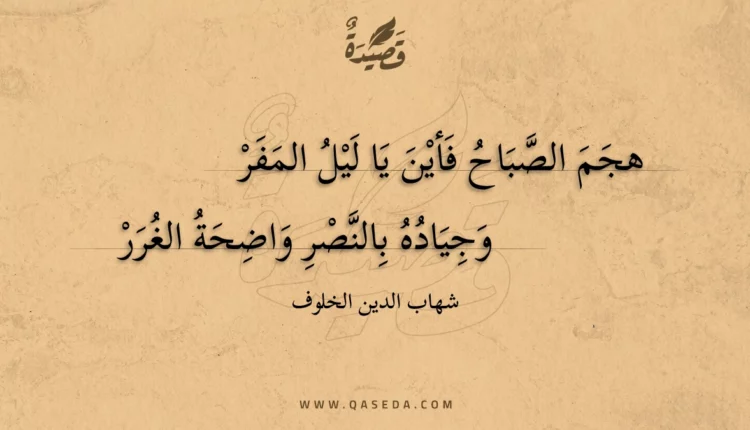 قَصِيْدَةٌ
هجَمَ الصَّبَاحُ فَأيْنَ يَا لَيْلُ المَفَرْ
وَجِيَادُهُ بِالنَّصْرِ وَاضِحَةُ الغُرَرْ
شهاب الدين الخلوف
WWW.QASEDA.COM